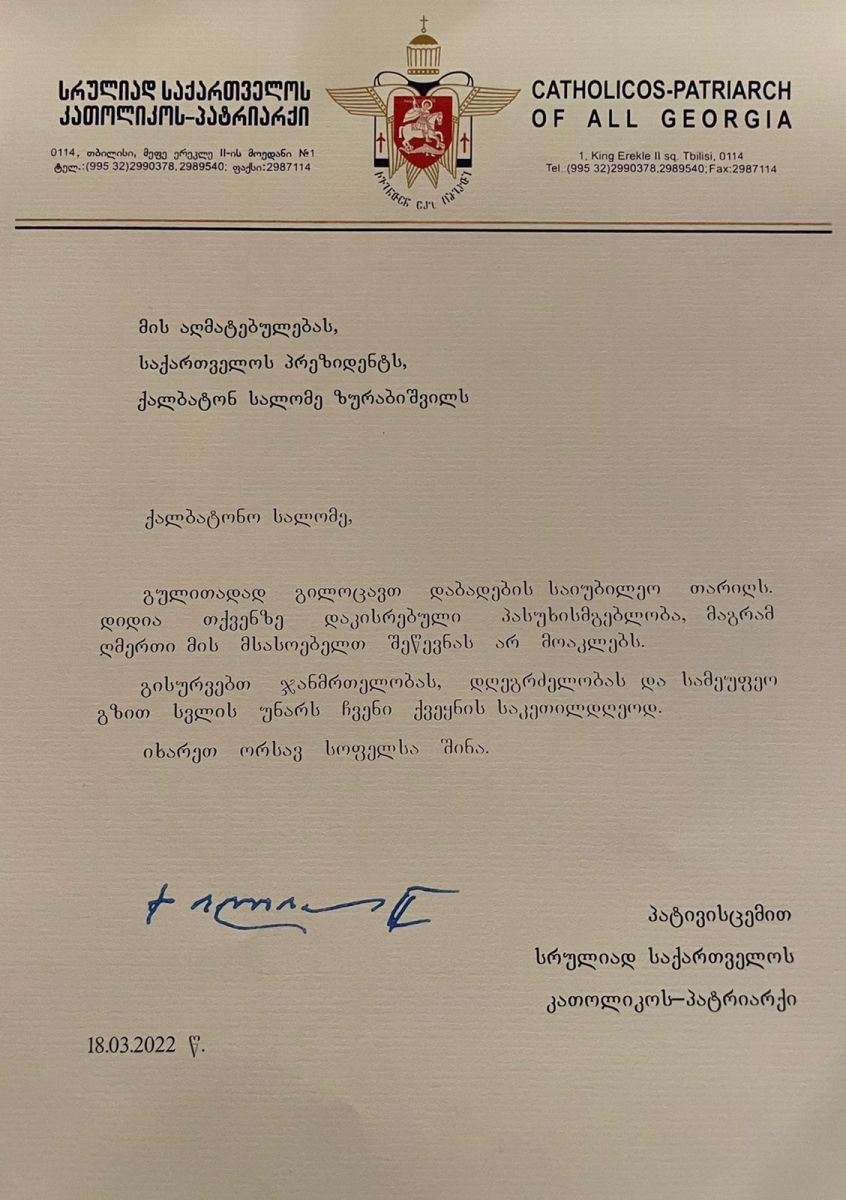 სრულიად საქართველოს
კათოლიკოს-პატრიარქი
0114, თბილისი, მეფე ერეკლე II-ის მოედანი №1
ტელ.:(995 32)2990378, 2989540; ფაქსი:2987114
CATHOLICOS-PATRIARCH
OF ALL GEORGIA
1, King Erekle II sq. Tbilisi, 0114
Tel.:(995 32)2990378,2989540;Fax:2987114
მის აღმატებულებას,
საქართველოს პრეზიდენტს,
ქალბატონ სალომე ზურაბიშვილს
ქალბატონო სალომე,
გულითადად გილოცავთ დაბადების საიუბილეო თარიღს.
დიდია თქვენზე დაკისრებული პასუხისმგებლობა, მაგრამ
ღმერთი მის მსასოებელთ შეწევნას არ მოაკლებს.
გისურვებთ ჯანმრთელობას, დღეგრძელობას და სამეუფეო
გზით სვლის უნარს ჩვენი ქვეყნის საკეთილდღეოდ.
იხარეთ ორსავ სოფელსა შინა.
პატივისცემით
სრულიად საქართველოს
კათოლიკოს-პატრიარქი
18.03.2022 წ.